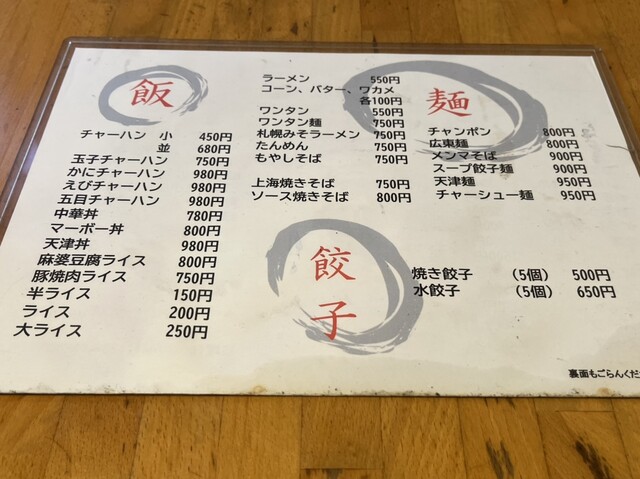 飯
チャーハン 小 450円
並 680円
玉子チャーハン 750円
かにチャーハン 980円
えびチャーハン 980円
五目チャーハン 980円
中華丼 780円
マーボー丼 800円
天津丼 980円
麻婆豆腐ライス 800円
豚焼肉ライス 750円
半ライス 150円
ライス 200円
大ライス 250円
麺
ラーメン 550円
コーン、バター、ワカメ
各100円
ワンタン 550円
ワンタン麺 750円
札幌みそラーメン 750円
たんめん 750円
もやしそば 750円
上海焼きそば 750円
ソース焼きそば 800円
チャンポン 800円
広東麺 800円
メンマそば 900円
スープ餃子麺 900円
天津麺 950円
チャーシュー麺 950円
餃子
焼き餃子 (5個) 500円
水餃子 (5個) 650円
裏面もごらんくだ